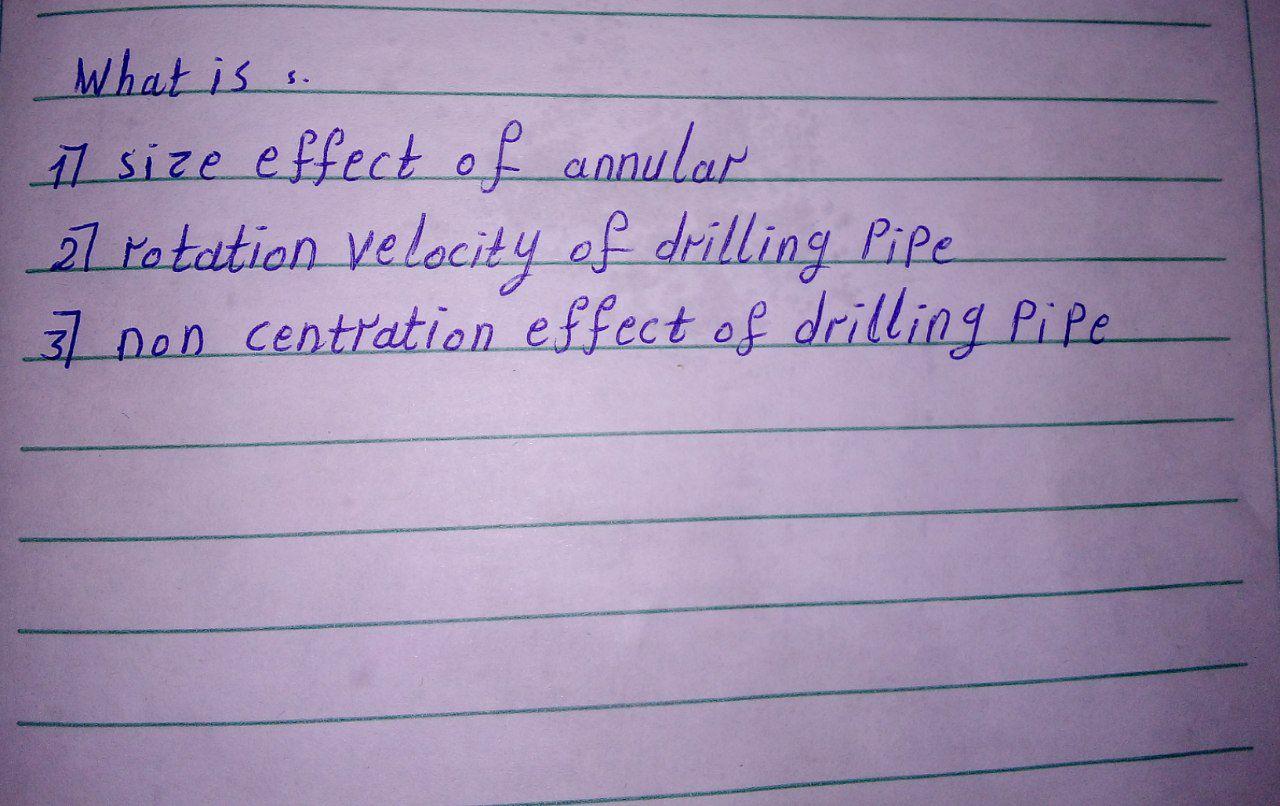 What is :.
1] size effect of annular
2] rotation velocity of drilling Pipe
3] non centration effect of drilling PiPe